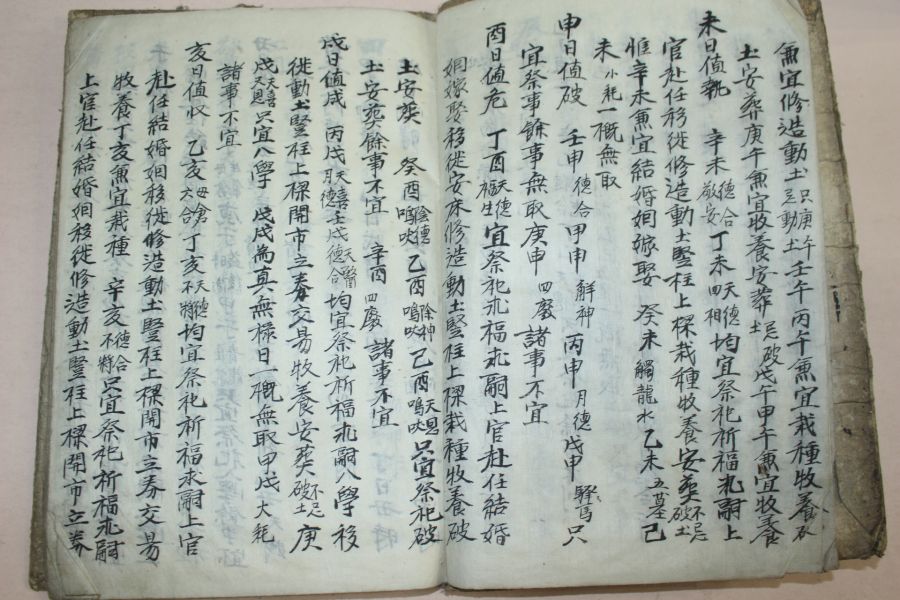 兼宜修造動土只庚午忌動土壬午丙午兼宜栽種牧養
土安葬庚午兼宜收養安葬忌破土戊午甲午兼宜牧養
未日值執 辛未德合敬安丁未天德四相均宜祭祀祈福求嗣上
官赴任移徙修造動土豎柱上樑栽種牧養安葬不忌破土
惟辛未兼宜結婚姻嫁娶 癸未觸龍水乙未五墓己
未小耗一概無取
申日值破 壬申德合甲申解神丙申月德戊申驛馬只
宜祭事餘事無取庚申四廢諸事不宜
酉日值危 丁酉天德福生宜祭祀求福求嗣上官赴任結婚
姻嫁娶移徙安床修造動土豎柱上樑栽種牧養破
土安葵 癸酉陰德鳴吠乙酉除神鳴吠己酉天恩鳴吠只宜祭祀破
土安葵餘事不宜 辛酉四廢 諸事不宜
戌日值成 丙戌天喜月德壬戌天醫德合均宜祭祀祈福求嗣入學移
徙動土豎柱上樑開市立券交易牧養安葵不忌破土庚
戌天喜天恩只宜入學 戊戌為真無祿日一概無取甲戌大耗
諸事不宜
亥日值收 乙亥母倉六合丁亥天德不將均宜祭祀祈福求嗣上官
赴任結婚姻移徙修造動土豎柱上樑開市立券交易
牧養丁亥兼宜栽種 辛亥德合不將只宜祭祀祈福求嗣
上官赴任結婚姻移徙修造動土豎柱上樑開市立券